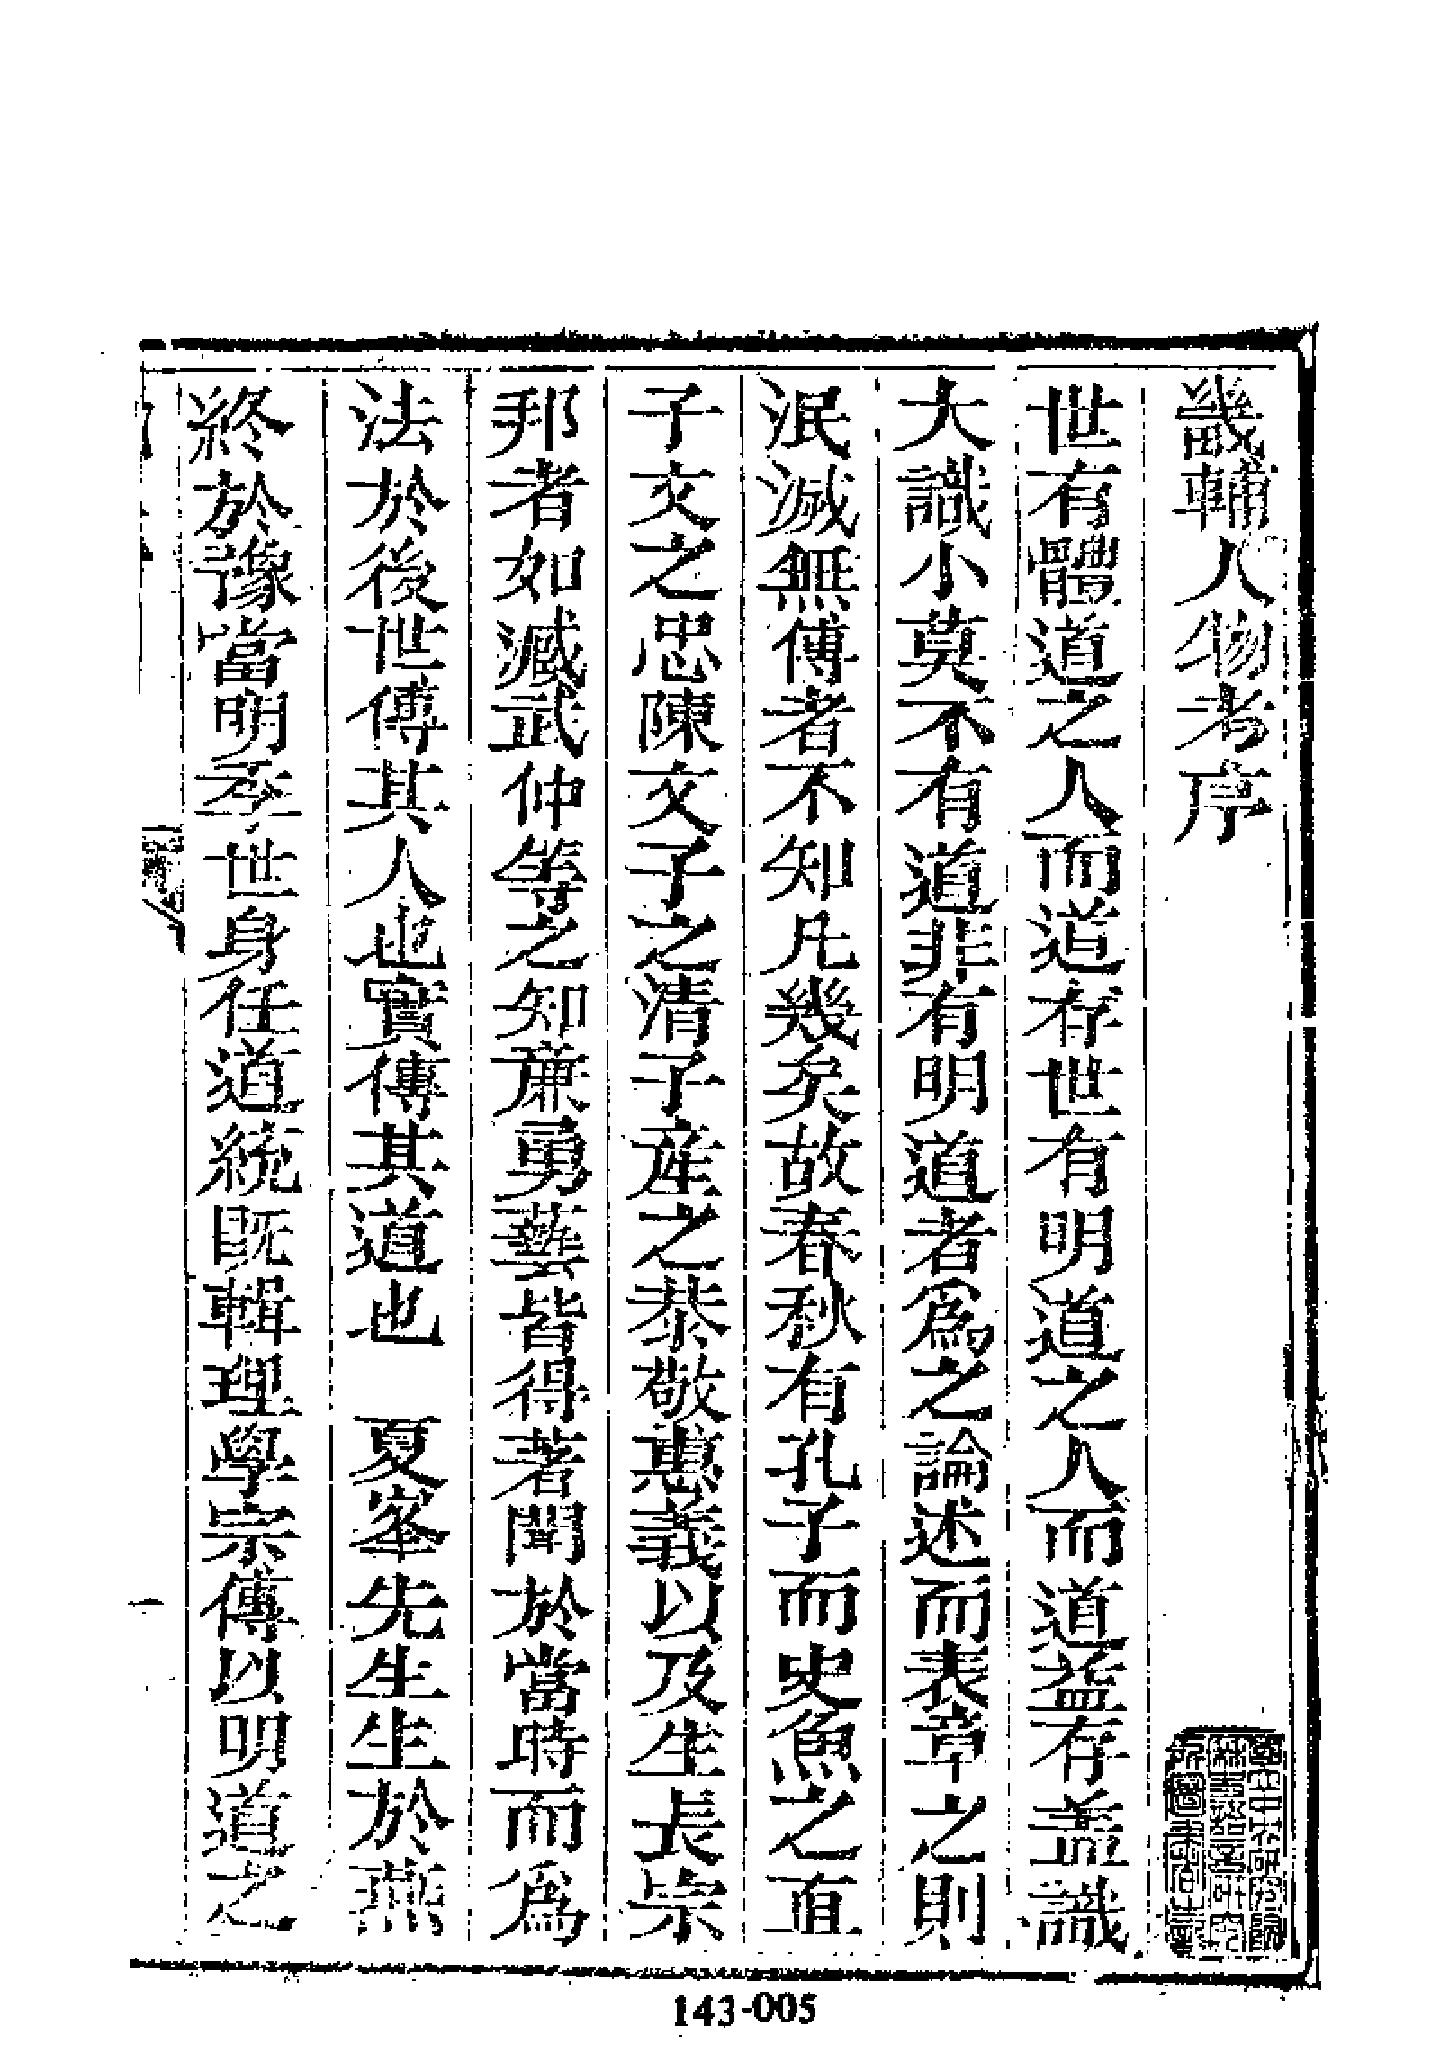 畿輔人物考序
世有體道之人而道存世有明道之人而道益存盖識
大識小莫不有道非有明道者爲之論述而表章之則
泯滅無傳者不知凡幾矣故春秋有孔子而史魚之直
子文之忠陳文子之清子產之恭敬惠義以及生長宗
邦者如臧武仲等之知廉勇藝皆得著聞於當時而爲
法於後世傳其人也實傳其道也 夏峯先生生於燕
終於豫當明季世身任道統既輯理學宗傳以明道之
一
143-005